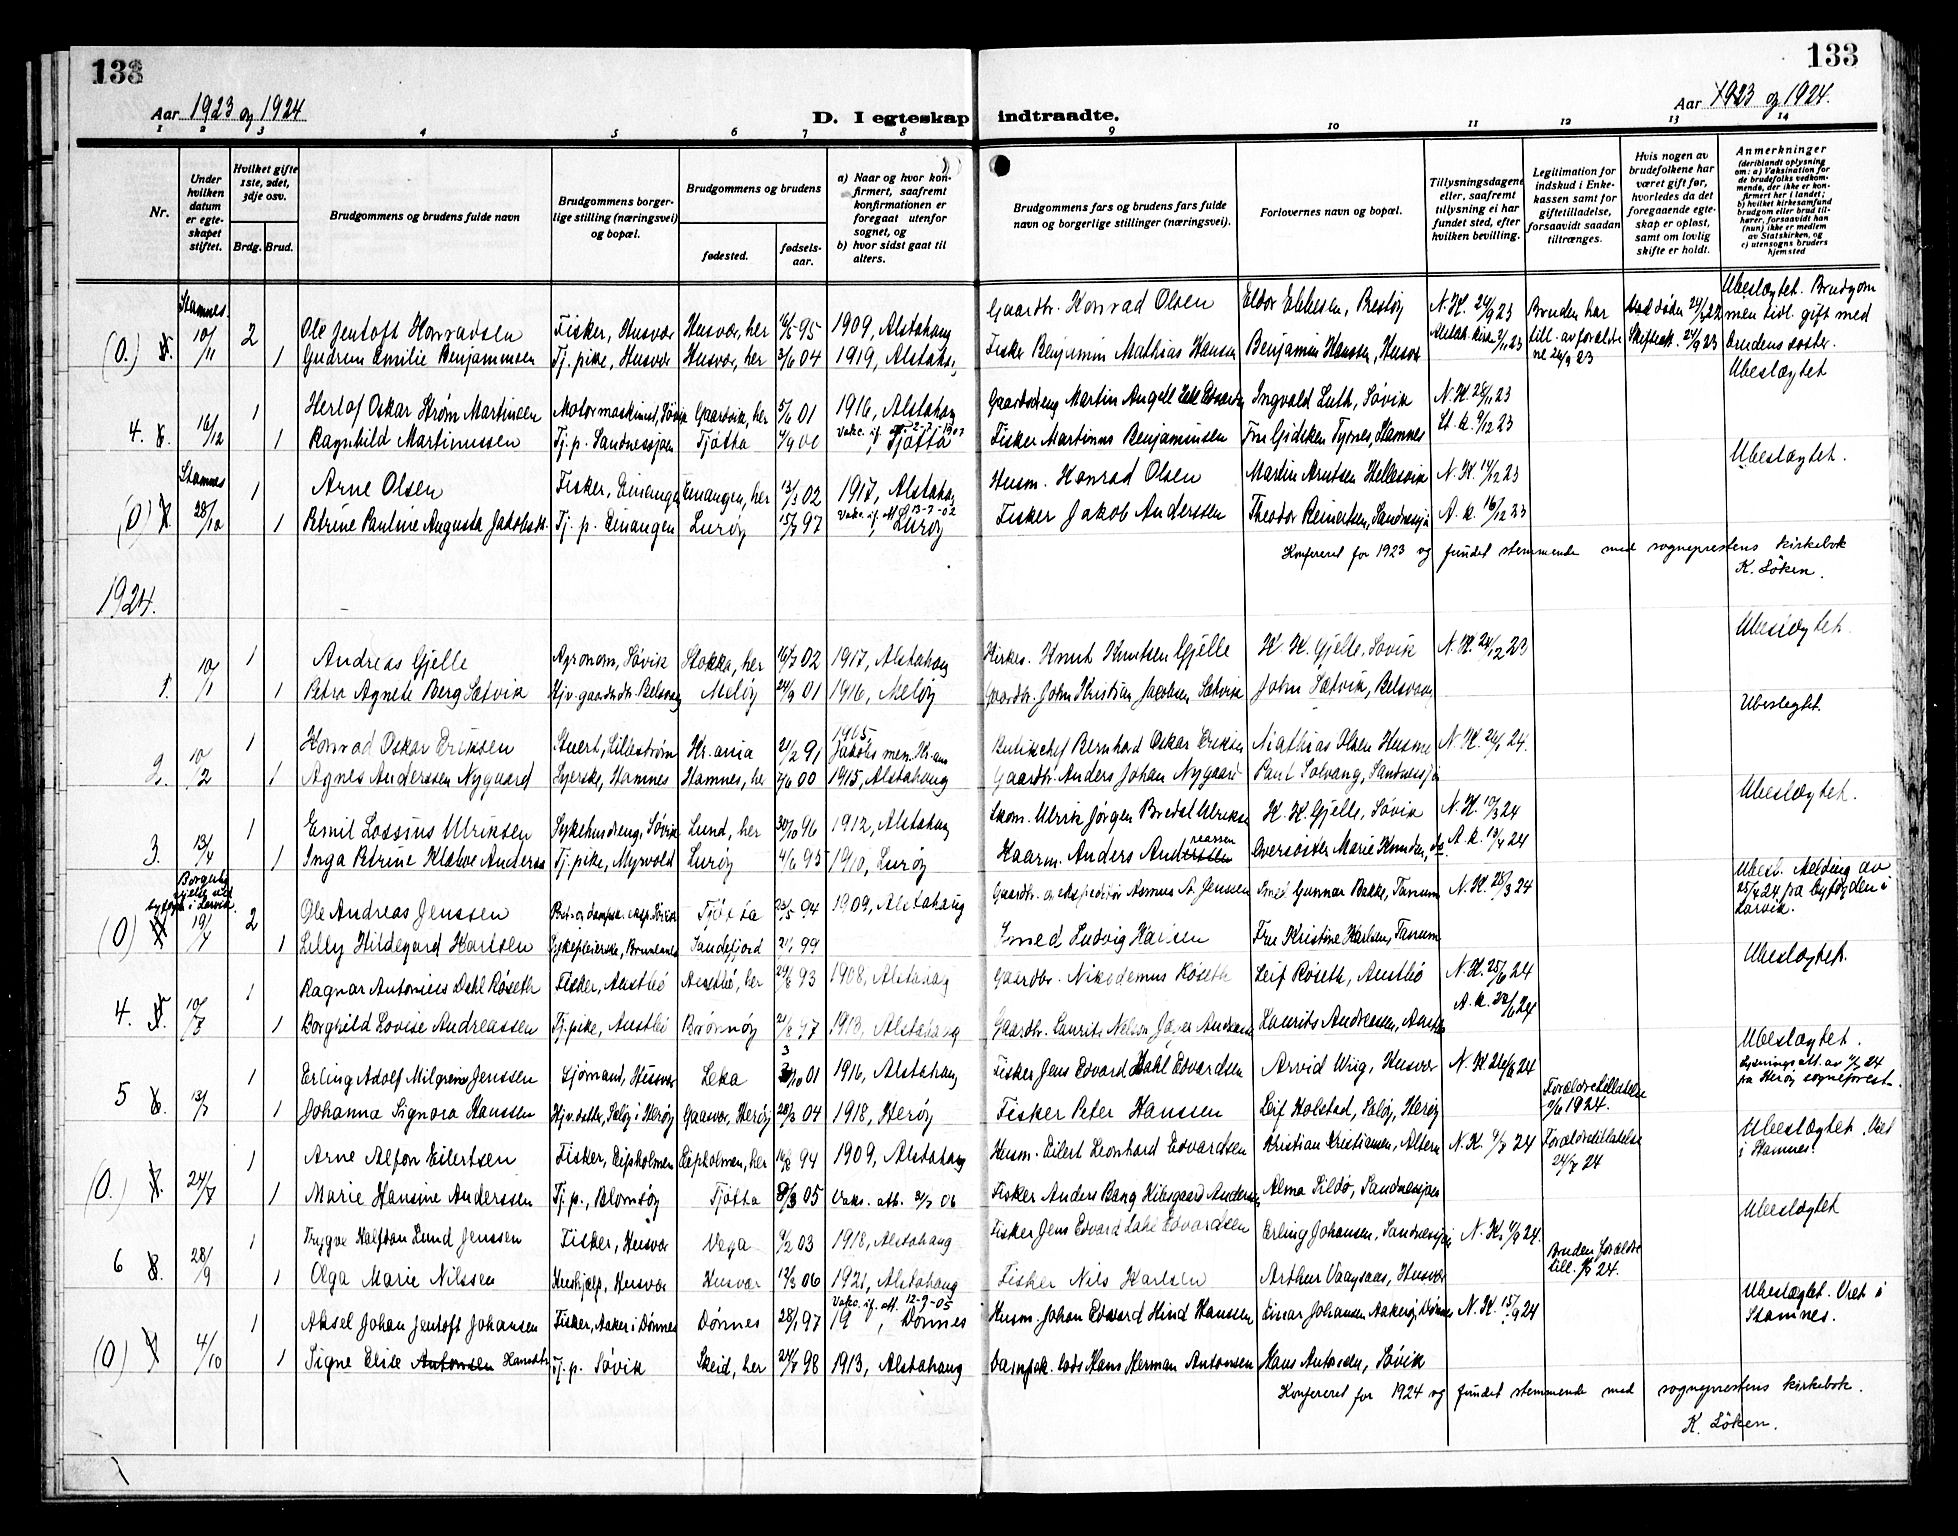 133
133
Aar 1923 og 1924
D. I egteskap indtraadte.
Aar 1923 og 1924.
1 2 3 4 5 6 7 8 9 10 11 12 13 14
Nr.
Under hvilken datum er egteskapet stiftet.
Hvilket gifte 1ste, 2det, 3dje osv.
Brdg. Brud.
Brudgommens og brudens fulde navn
Brudgommens borgerlige stilling (næringsvei) og bopæl.
Brudgommens og brudens
fødested.
fødselsaar.
a) Naar og hvor konfirmert, saafremt konfirmationen er foregaat utenfor sognet, og
b) hvor sidst gaat til alters.
Brudgommens fars og brudens fars fulde navn og borgerlige stillinger (næringsvei).
Forlovernes navn og bopæl.
Tillysningsdagene eller, saafremt tillysning ei har fundet sted, efter hvilken bevilling.
Legitimation for indskud i Enkekassen samt for giftetilladelse, forsaavidt saadan tiltrænges.
Hvis nogen av brudefolkene har været gift før, hvorledes da det foregaaende egteskap er opløst, samt om lovlig skifte er holdt.
Anmerkninger
(deriblandt oplysning om: a) Vaksination for de brudefolks vedkommende, der ikke er konfirmert her i landet; b) hvilket kirkesamfund brudgom eller brud tilhører, forsaavidt han (hun) ikke er medlem av Statskirken, og c) utensogns bruders hjemsted
Stamnes
(0.) 10/11 2 Ole Jentoft Konradsen Fisker, Husvær Husvær, her 16/5 95 1909, Alstahaug Gaardbr. Konrad Olsen Eldor Ebbesen, N.K. 29/9 23 Bruden har Ubeslægtet. Brudgom
1 Gudrun Emilie Benjaminsen Tj. pike, Husvær Husvær, her 3/6 04 1919, Alstahg. Fisker Benjamin Mathias Hansen Benjamin Hansen, Husvær till. av forældre men tidl. gift med
ne 26/9 23 brudens søster.
4. 16/12 1 Herlof Oskar Strøm Martinsen Motormaskinist, Søvik Gaardsvik, her 5/6 01 1916, Alstahaug Martin Angell Ingvald Luth, Søvik N.K. 28/11 23 Ubeslægtet
1 Ragnhild Martinussen Tj. p. Sandnessjøen Tjøtta Tjøtta Fisker Martinus Benjaminsen Fru Gidsken Stamnes St. k. 9/12 23
Stamnes
(0) 28/10 1 Arne Olsen Fisker, Einangen Einangen, her 13/3 02 1917, Alstahaug Husm. Konrad Olsen Martin Arntsen Hellesvik N.K. 14/12 23 Ubeslægtet.
1 Petrine Pauline Augusta Jakobsd. Tj. p. Einangen Lurøy 15/7 97 Lurøy Fisker Jakob Anderssen Theodor Reinertsen, Sandnessjø A. k. 16/12 23
Konfereret for 1923 og fundet stemmende med sogneprestens kirkebok
K. Löken.
1924.
1. 10/1 1 Andreas Gjelle Agronom, Søvik Stokka, her 16/7 02 1917, Alstahaug Kirkes. Knut Knutsen Gjelle K. K. Gjelle, Søvik N.K. 24/12 23 Ubeslægtet.
1 Petra Agnete Berg Sætvik Hjv. gaardbr. Belsvaag Meløy 24/9 01 1916, Meløy Gaardbr. John Kristian Jacobsen Sætvik John Sætvik, Belsvaag
2. 10/2 1 Konrad Oskar Eriksen Stuert, Lillestrøm Kr.ania 21/2 91 1905, Jakobs men. Kr.ania Butikchef Bernhard Oskar Eriksen Mathias Olsen Husmo N.K. 26/1 24. Ubeslægtet.
1 Agnes Anderssen Nygaard Syerske, Hamnes Hamnes, her 7/6 00 1915, Alstahaug Gaardbr. Anders Johan Nygaard Paul Solvang, Sandnessjø
3. 13/4 1 Emil Lossius Ulriksen Sykehusdreng, Søvik Lund, her 30/10 96 1912, Alstahaug Skom. Ulrik Jørgen Bredal Ulriksen K. K. Gjelle, Søvik N.K. 10/3 24 Ubeslægtet.
1 Inga Petrine Klæboe Andersen Tj. pike, Myrvold Lurøy 4/6 95 1910, Lurøy Haarm. Anders Andreassen Oversøster Marie Knudsen, do A. k. 13/4 24
Borgerlig vielse ved byfogd i Larvik.
(0) 19/4 2 Ole Andreas Jenssen Tjøtta 25/5 94 1909, Alstahaug Gaardbr. og ekspeditør Asmus A. Jenssen Smed Gunnar Bakke, Tanum N.K. 28/3 24 Ubesl. Melding av
1 Lilly Hildegard Karlsen Sykepleierske, Brunlanes Sandefjord 21/1 99 Smed Ludvig Karlsen Fru Kristine Karlsen, Tanum 25/4 24 fra byfogden i Larvik.
4. 10/7 1 Ragnar Antonius Dahl Røseth Fisker, Austbö Austbö, her 29/6 93 1908, Alstahaug Gaardbr. Nikodemus Røseth Leif Røseth, Austbö N.K. 25/6 24 Ubeslægtet.
1 Borghild Lovise Andreassen Tj. pike, Austbö Brønnøy 21/8 97 1913, Alstahaug Gaardbr. Laurits Nelson Jæger Andreassen Laurits Andreassen, Austbö A. k. 22/6 24
5 13/7 1 Erling Adolf Milgren Jenssen Sjømand, Husvær Leka 3/10 01 1916, Alstahaug Fisker Jens Edvard Dahl Edvardsen Arvid Wiig, Husvær N.K. 26/6 24 Ubeslægtet.
1 Johanna Signora Hanssen Hjv. datter, Saløy i Herøy Gaasvær, Herøy 28/3 04 1918, Herøy Fisker Peter Hanssen Leif Holstad, Saløy, Herøy Forældretilladelse 1924. Lysningsatt. av 7/7 24 fra Herøy sogneprest.
(0.) 24/7 1 Arne Alfon Eilertsen Fisker, Eipholmen Eipholmen, her 16/8 94 1909, Alstahaug Husm. Eilert Leonhard Edvardsen Kristian Kristiansen, Altern N.K. 9/7 24 Forældretilladelse 24/7 24 Ubeslægtet. Viet i Stamnes.
1 Marie Hansine Anderssen Tj. p., Blomsøy Tjøtta 05 Vaks. att. 06 Fisker Anders Bang Hilsgaard Andersen Alma Sildø, Sandnessjøen
6 28/9 1 Trygve Halfdan Lund Jenssen Fisker, Husvær Vega 9/2 03 1918, Alstahaug Fisker Jens Edvard Dahl Edvardsen Erling Johansen, Sandnessjøen N.K. 9/9 24. Ubeslægtet
1 Olga Marie Nilssen Husvær Husvær 12/3 06 1921, Alstahaug Fisker Nils Karlsen Arthur Vaagsaas, Husvær Bruden forældre till. 24.
Vakc. if. att. 12-9-05
(0) 4/10 1 Aksel Johan Jentoft Johansen Fisker, Aaker i Dønnes Dønnes 28/1 97 19 , Dønnes Husm. Johan Edvard Hind Hanssen Einar Johansen Aakerøy, Dønnes N.K. 15/9 24 Ubeslægtet. Viet i Stamnes.
1 Signe Elise Antonsen Hansdtr. Tj. p. Søvik Skeid, her 24/7 98 1913, Alstahaug Dampsk. lods Hans Herman Antonsen Hans Antonsen, Søvik
Konfereret for 1924 og fundet stemmende med sogneprestens kirkebok.
K. Löken.